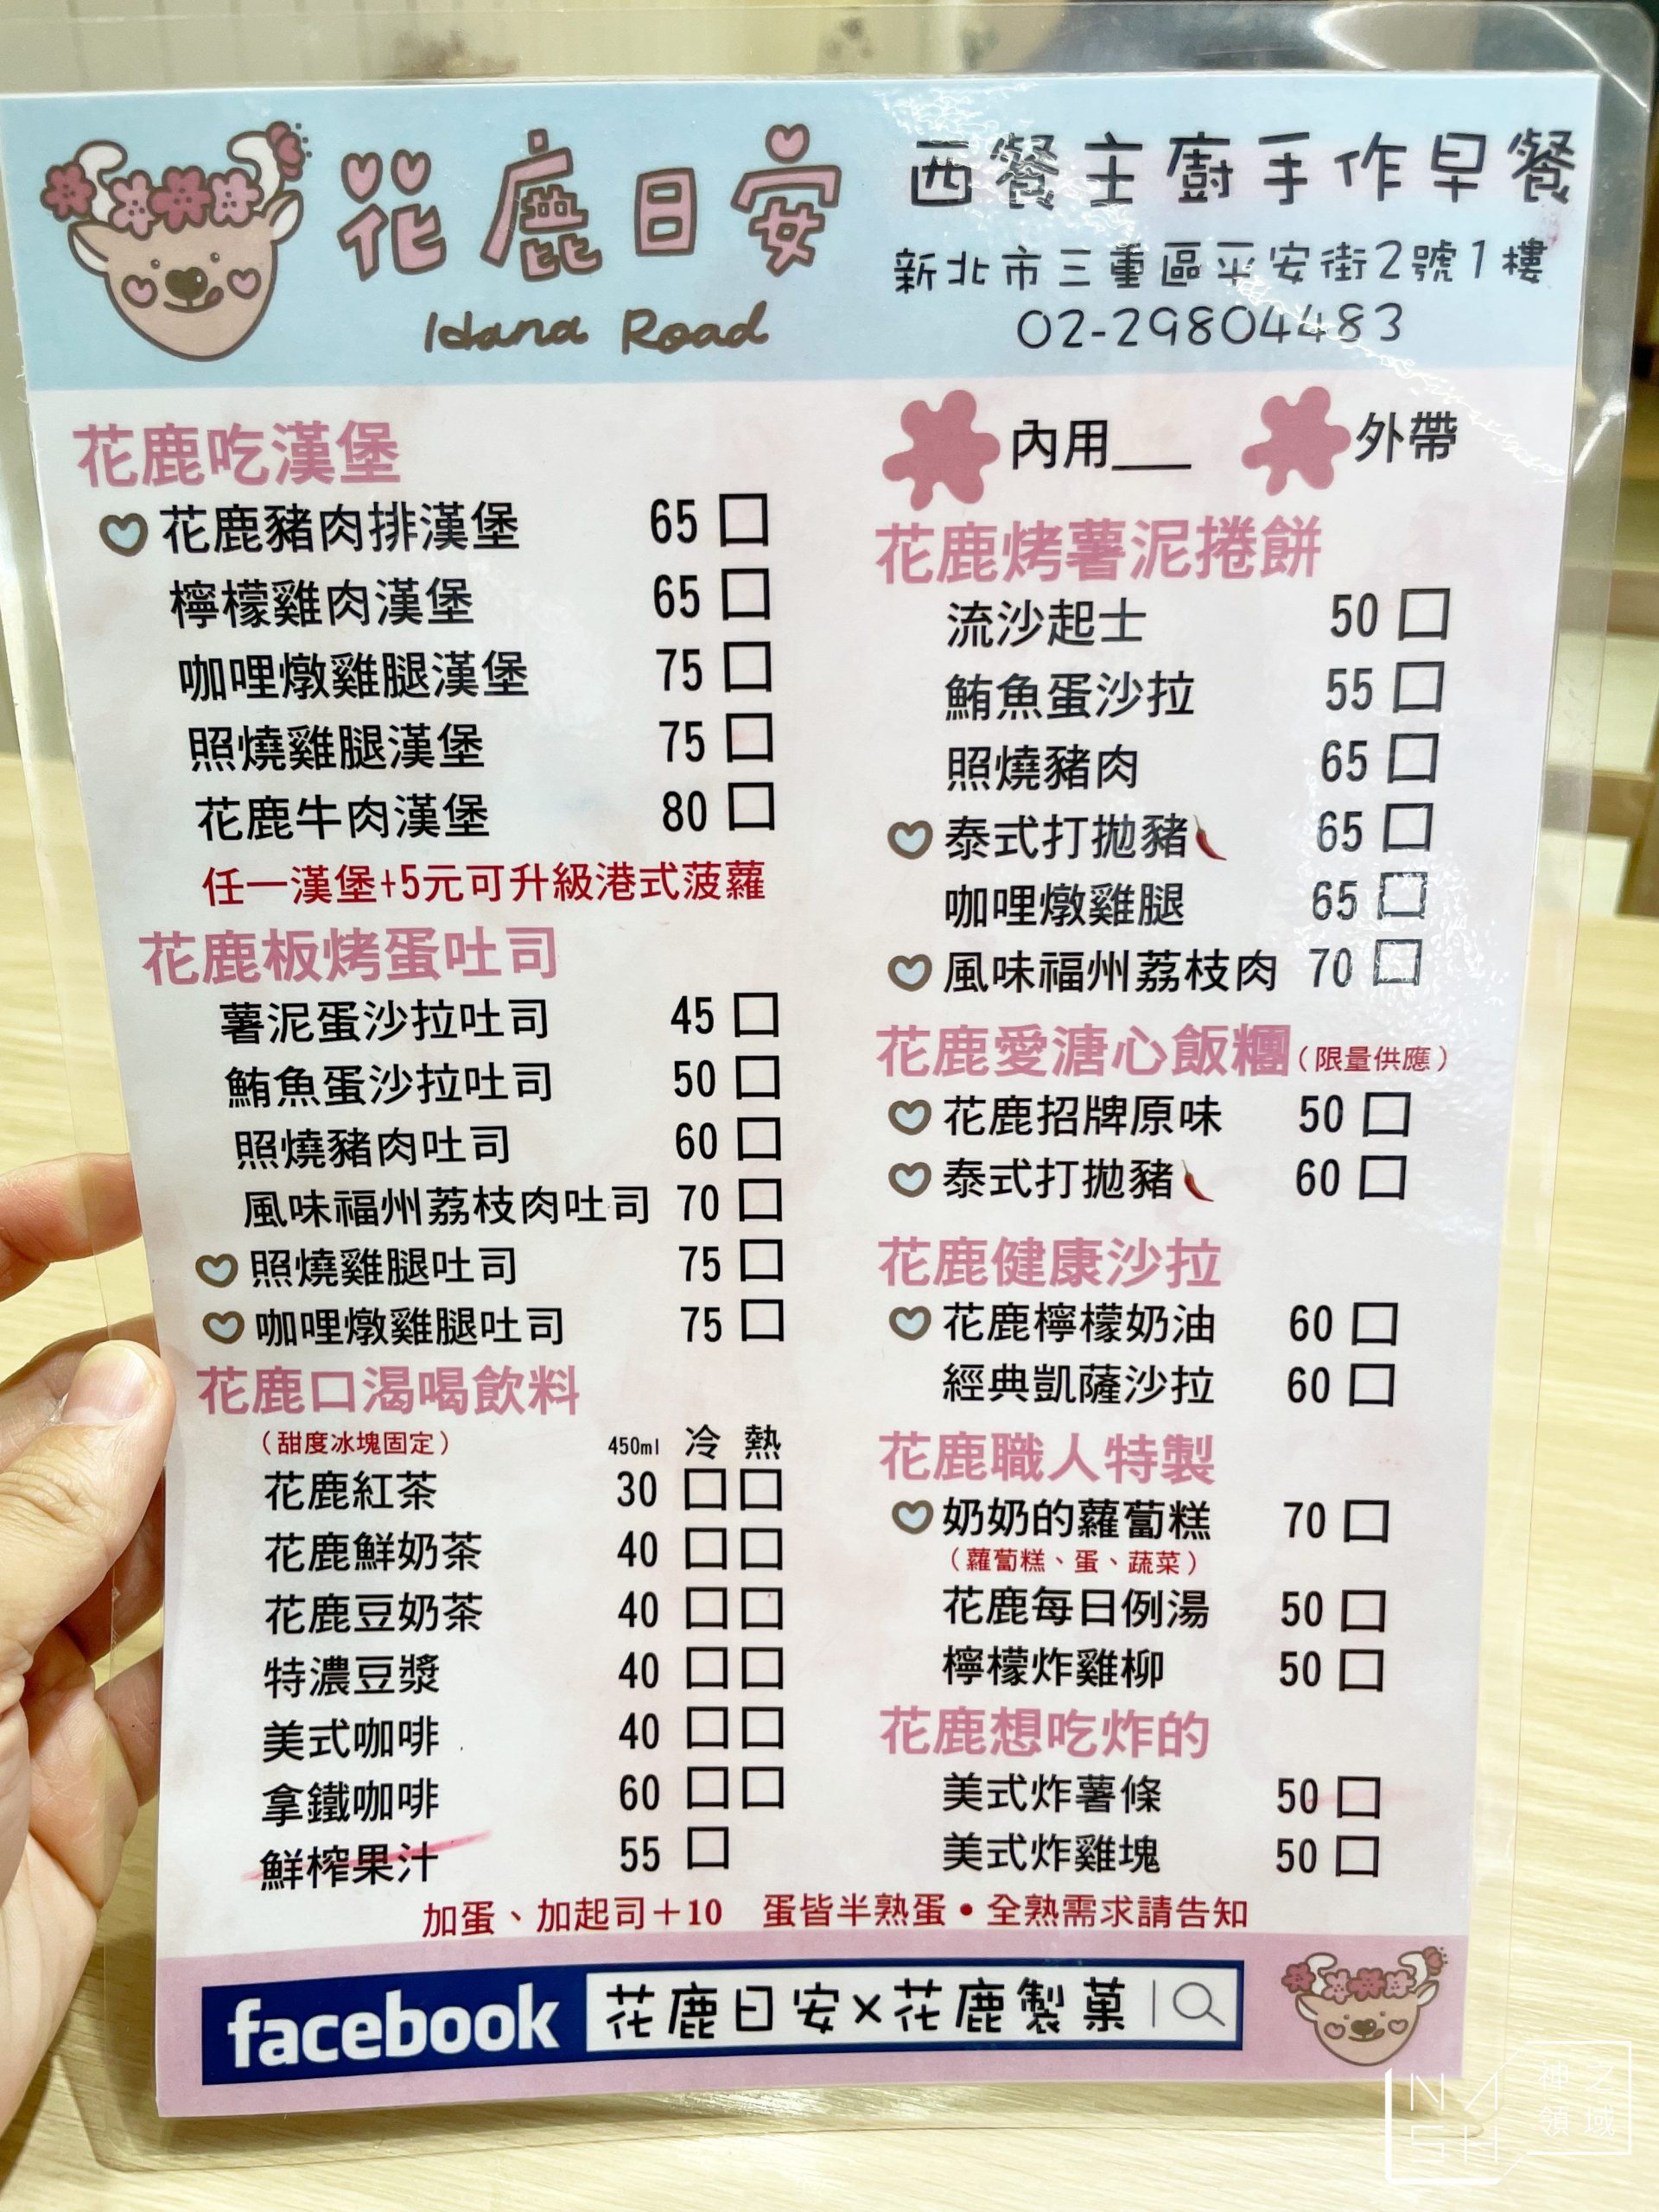 花鹿日安
Hana Road
西餐主廚手作早餐
新北市三重區平安街2號1樓
02-29804483
花鹿吃漢堡
花鹿豬肉排漢堡 65
檸檬雞肉漢堡 65
咖哩燉雞腿漢堡 75
照燒雞腿漢堡 75
花鹿牛肉漢堡 80
任一漢堡+5元可升級港式菠蘿
花鹿板烤蛋吐司
薯泥蛋沙拉吐司 45
鮪魚蛋沙拉吐司 50
照燒豬肉吐司 60
風味福州荔枝肉吐司 70
照燒雞腿吐司 75
咖哩燉雞腿吐司 75
花鹿口渴喝飲料
（甜度冰塊固定） 450ml 冷 熱
花鹿紅茶 30
花鹿鮮奶茶 40
花鹿豆奶茶 40
特濃豆漿 40
美式咖啡 40
拿鐵咖啡 60
鮮榨果汁 55
內用___ 外帶
花鹿烤薯泥捲餅
流沙起士 50
鮪魚蛋沙拉 55
照燒豬肉 65
泰式打拋豬 65
咖哩燉雞腿 65
風味福州荔枝肉 70
花鹿愛溏心飯糰（限量供應）
花鹿招牌原味 50
泰式打拋豬 60
花鹿健康沙拉
花鹿檸檬奶油 60
經典凱薩沙拉 60
花鹿職人特製
奶奶的蘿蔔糕 70
（蘿蔔糕、蛋、蔬菜）
花鹿每日例湯 50
檸檬炸雞柳 50
花鹿想吃炸的
美式炸薯條 50
美式炸雞塊 50
加蛋、加起司＋10 蛋皆半熟蛋•全熟需求請告知
facebook 花鹿日安×花鹿製菓
NASH 神之領域